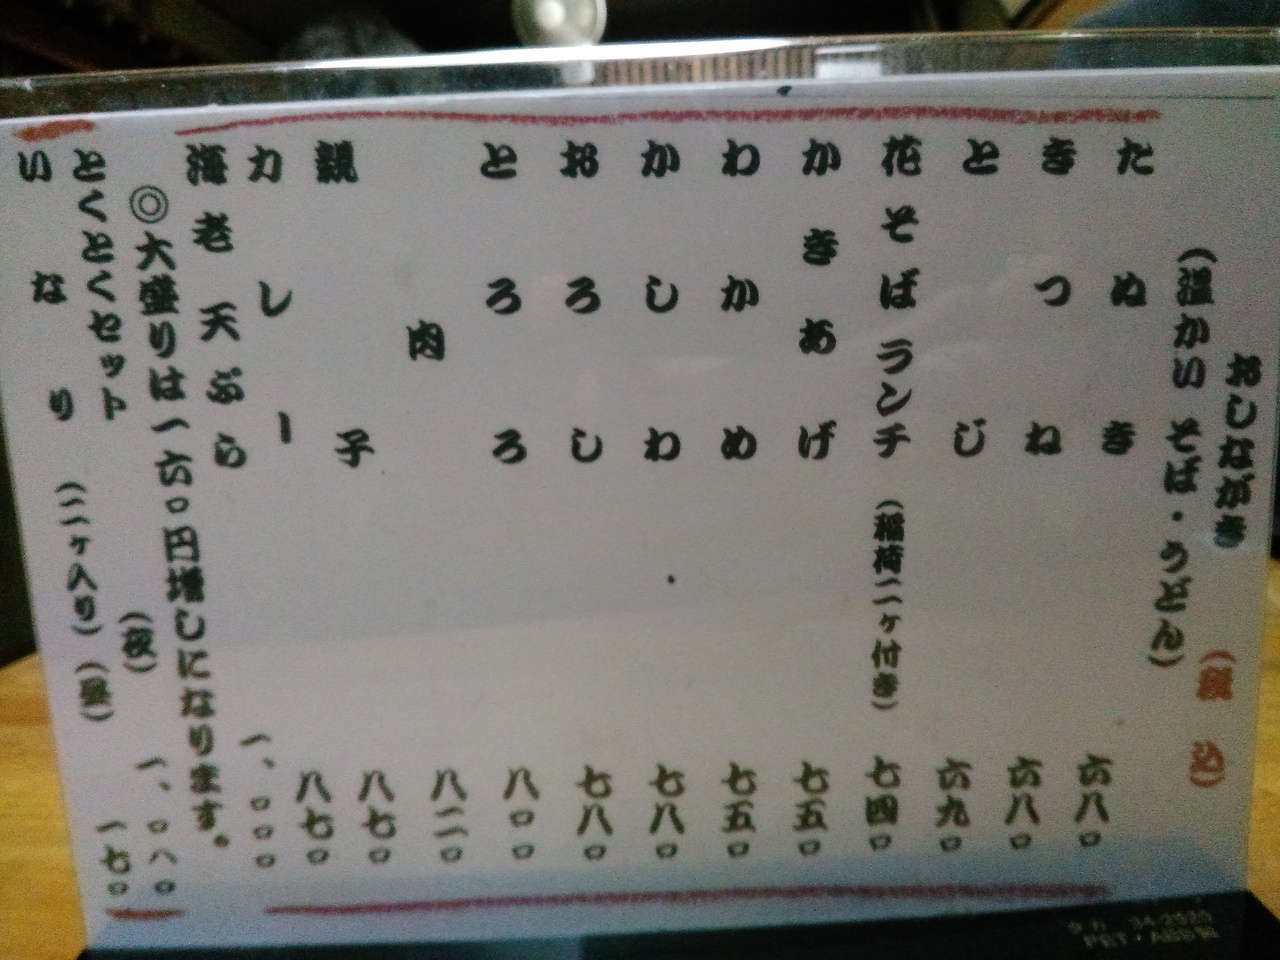 おしながき (税込)
(温かい そば・うどん)
たぬき 六八〇
きつね 六八〇
とじ 六九〇
花そばランチ (稲荷二ヶ付き) 七四〇
かきあげ 七五〇
わかめ 七五〇
かしわ 七八〇
おろし 七八〇
とろろ 八〇〇
肉 八二〇
親子 八七〇
カレー 八七〇
海老天ぷら 一、〇〇〇
◎大盛りは一六〇円増しになります。
とくとくセット (夜) 一、〇八〇
いなり (二ヶ入り) (昼) 一七〇